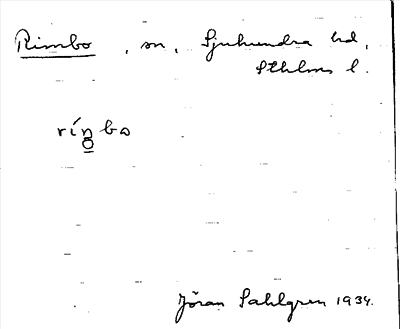 Rimbo, sn, Sjuhundra hd,
Sthlms l.
rı́n̥bo
Jöran Sahlgren 1934.